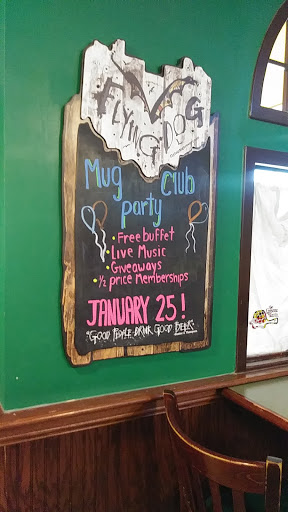 FLYING DOG
Mug Club
party
• Free buffet
• Live Music
• Giveaways
• ½ price Memberships
JANUARY 25!
"GOOD PEOPLE DRINK GOOD BEER"